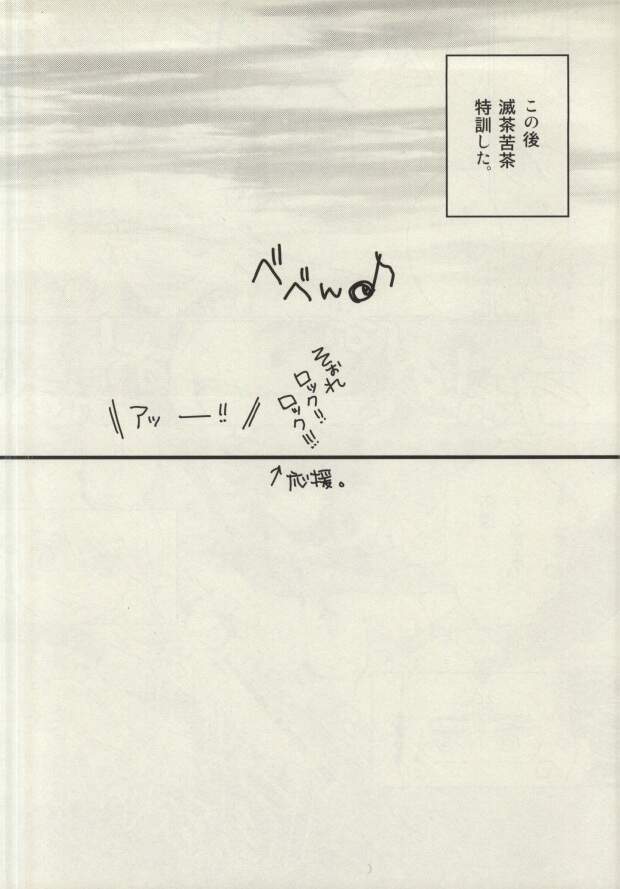 この後
滅茶苦茶
特訓した。
べべんwの♪
そぉれ
ロック!!
ロック!!!
アッー!!
↑応援。